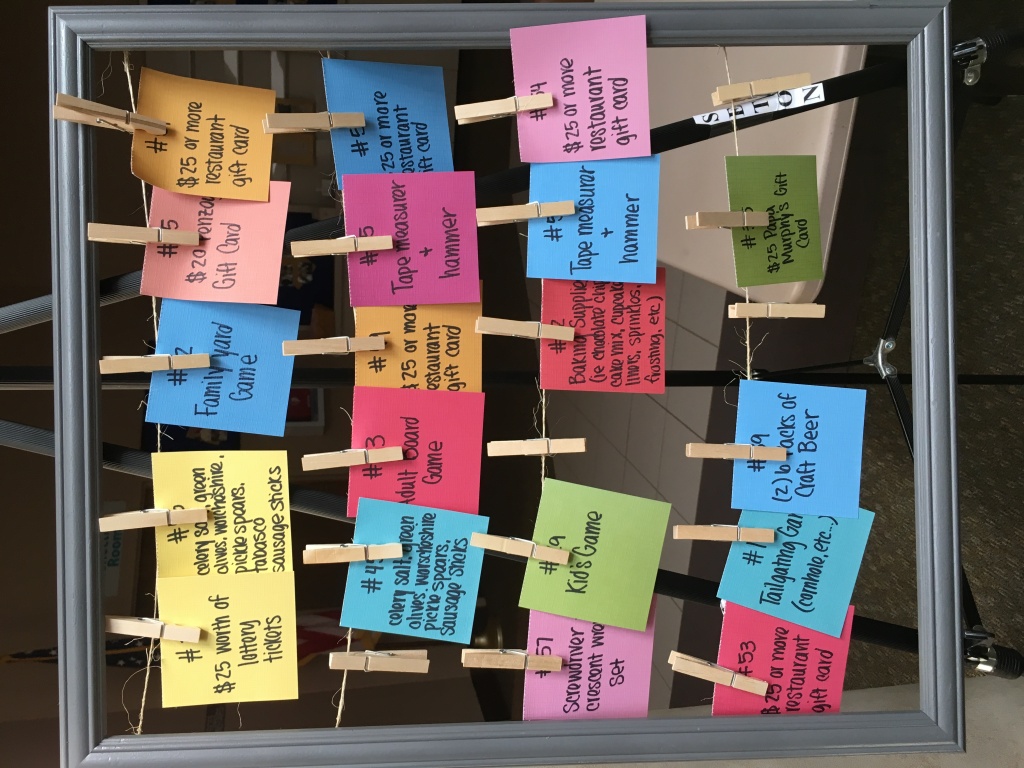 #
$25 worth of
lottery
tickets
#
celery green
olives, worchshire,
pickle spears,
tabasco
sausage sticks
#2
Family yard
Game
#5
$20
Gift Card
#
$25 or more
restaurant
gift card
#4
celery salt, green
olives, worschoshire
pickle spears,
sausage sticks
#3
Adult Board
Game
#1
$25 or more
restaurant
gift card
#5
Tape measurer
+
hammer
#5
$25 or more
restaurant
gift card
#57
Screwdriver
crescent
set
#9
Kid's Game
#2
Baking Supplies
(ie chocolate chips,
cake mix, cupcake
liners, sprinkles,
frosting, etc.)
#5
Tape measurer
+
hammer
#4
$25 or more
restaurant
gift card
#53
$25 or more
restaurant
gift card
#1
Tailgating Game
(cornhole, etc...)
#9
(2) 6 packs of
Craft Beer
#35
$25 Papa
Murphy's Gift
Card